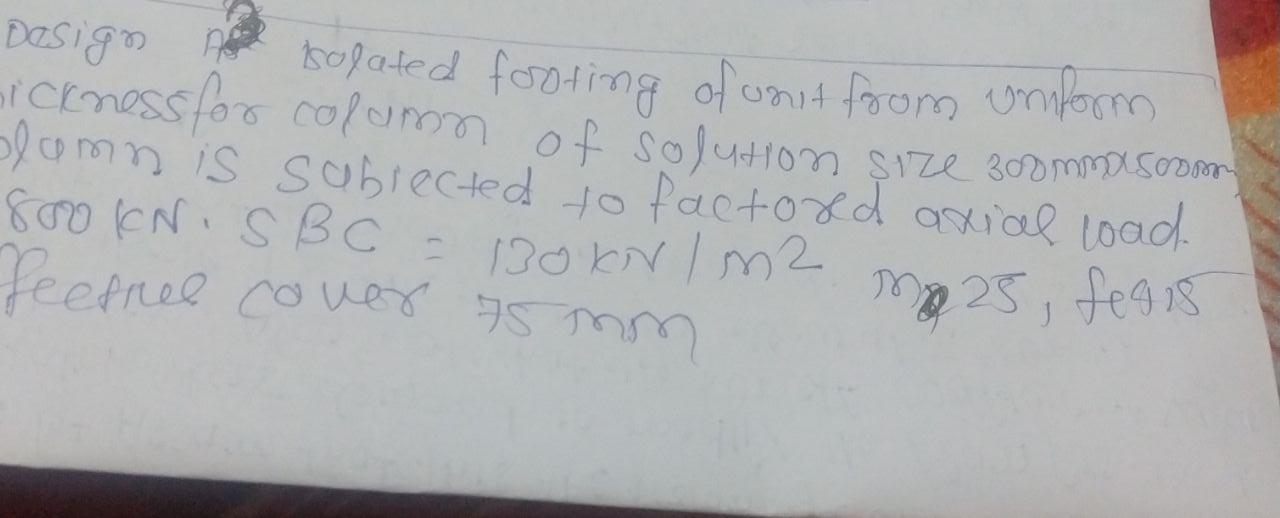 Design isolated footing of unit from uniform
ickness for column of solution size 300mmx500mm
olumn is subjected to factored axial load.
800 KN. SBC = 130 KN/m2 M 25, fe415
ffectnee cover 75 mm